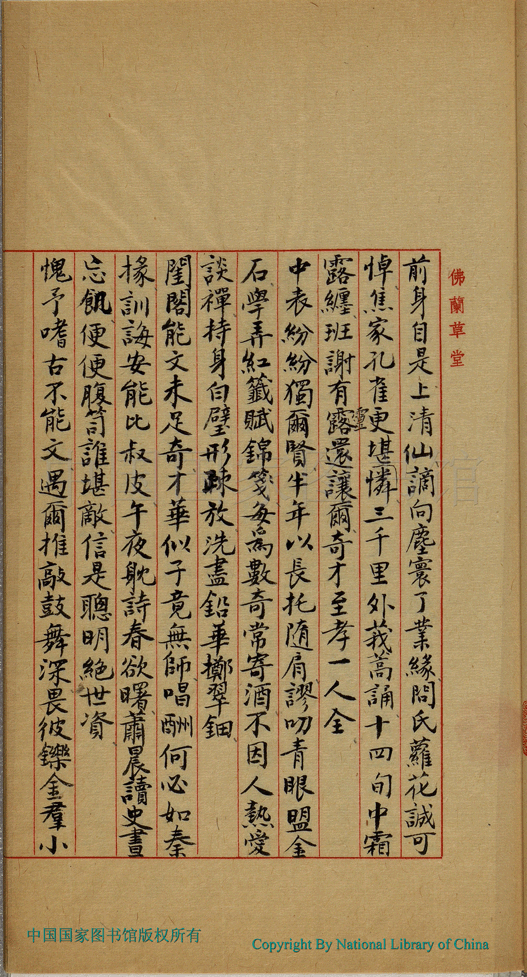 佛蘭草堂
前身自是上清仙謫向塵寰了業緣問氏蘿花誠可
悼焦家孔雀更堪憐三千里外莪蒿誦十四旬中霜
露纏班謝有露靈還讓爾奇才至孝一人全
中表紛紛獨爾賢半年以長托随肩謬叨青眼盟金
石學弄紅籤賦錦箋每為數奇常寄酒不因人熱愛
談禪持身白璧形疎放洗盡鉛華擲翠鈿
閨閣能文未足奇才華似子竟無師唱酬何必如秦
掾訓誨安能比叔皮午夜躭詩春欲曙蕭晨讀史晝
忘飢便便腹笥誰堪敵信是聰明絕世資
愧予嗜古不能文遇爾推敲鼓舞深畏彼鑠金羣小
中国国家图书馆版权所有
Copyright By National Library of China